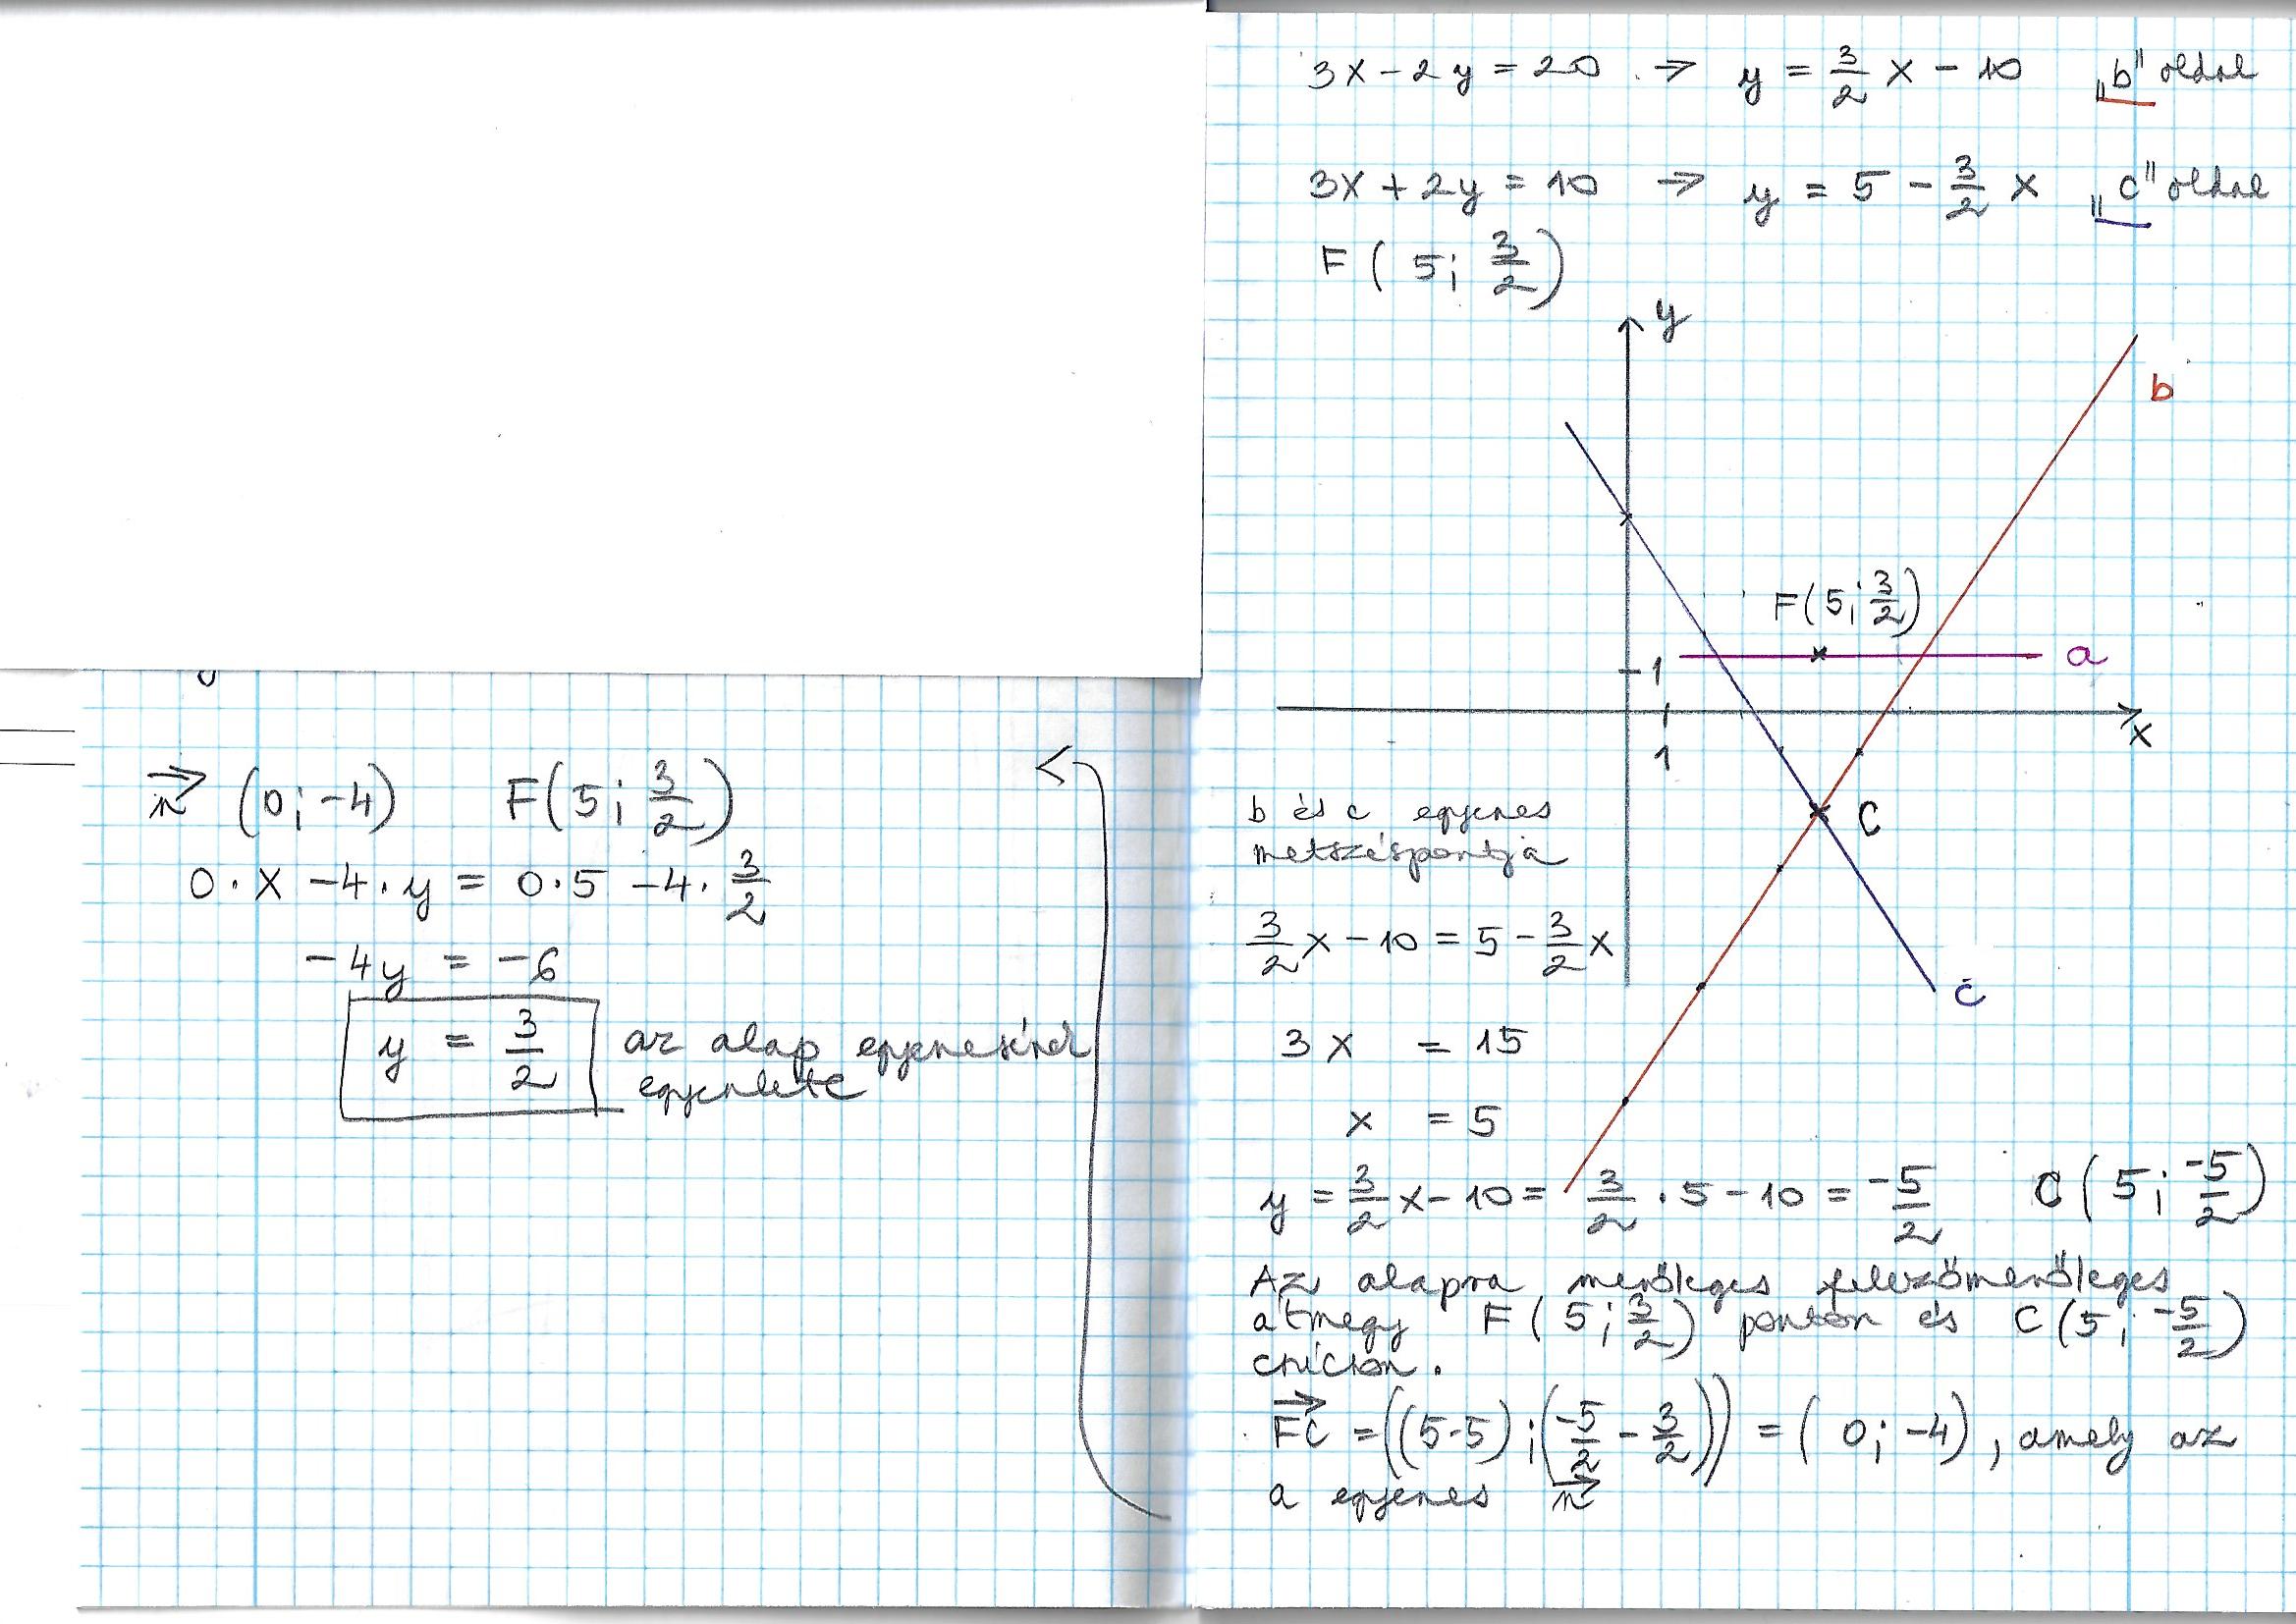 3x - 2y = 20 → y = 3/2 x - 10 „b" oldal
3x + 2y = 10 → y = 5 - 3/2 x „c" oldal
F(5; 3/2)
y
b
F(5; 3/2)
a
1
x
1
C
c
b és c egyenes
metszéspontja
3/2 x - 10 = 5 - 3/2 x
3x = 15
x = 5
y = 3/2 x - 10 = 3/2 · 5 - 10 = -5/2 C(5; -5/2)
Az alapra merőleges felezőmerőleges
átmegy F(5; 3/2) ponton és C(5; -5/2)
csúcson.
FC→ = ((5-5); (-5/2 - 3/2)) = (0; -4), amely az
a egyenes n→
n→ (0; -4) F(5; 3/2)
0·x - 4·y = 0·5 - 4·3/2
-4y = -6
y = 3/2 az alap egyenesének
egyenlete